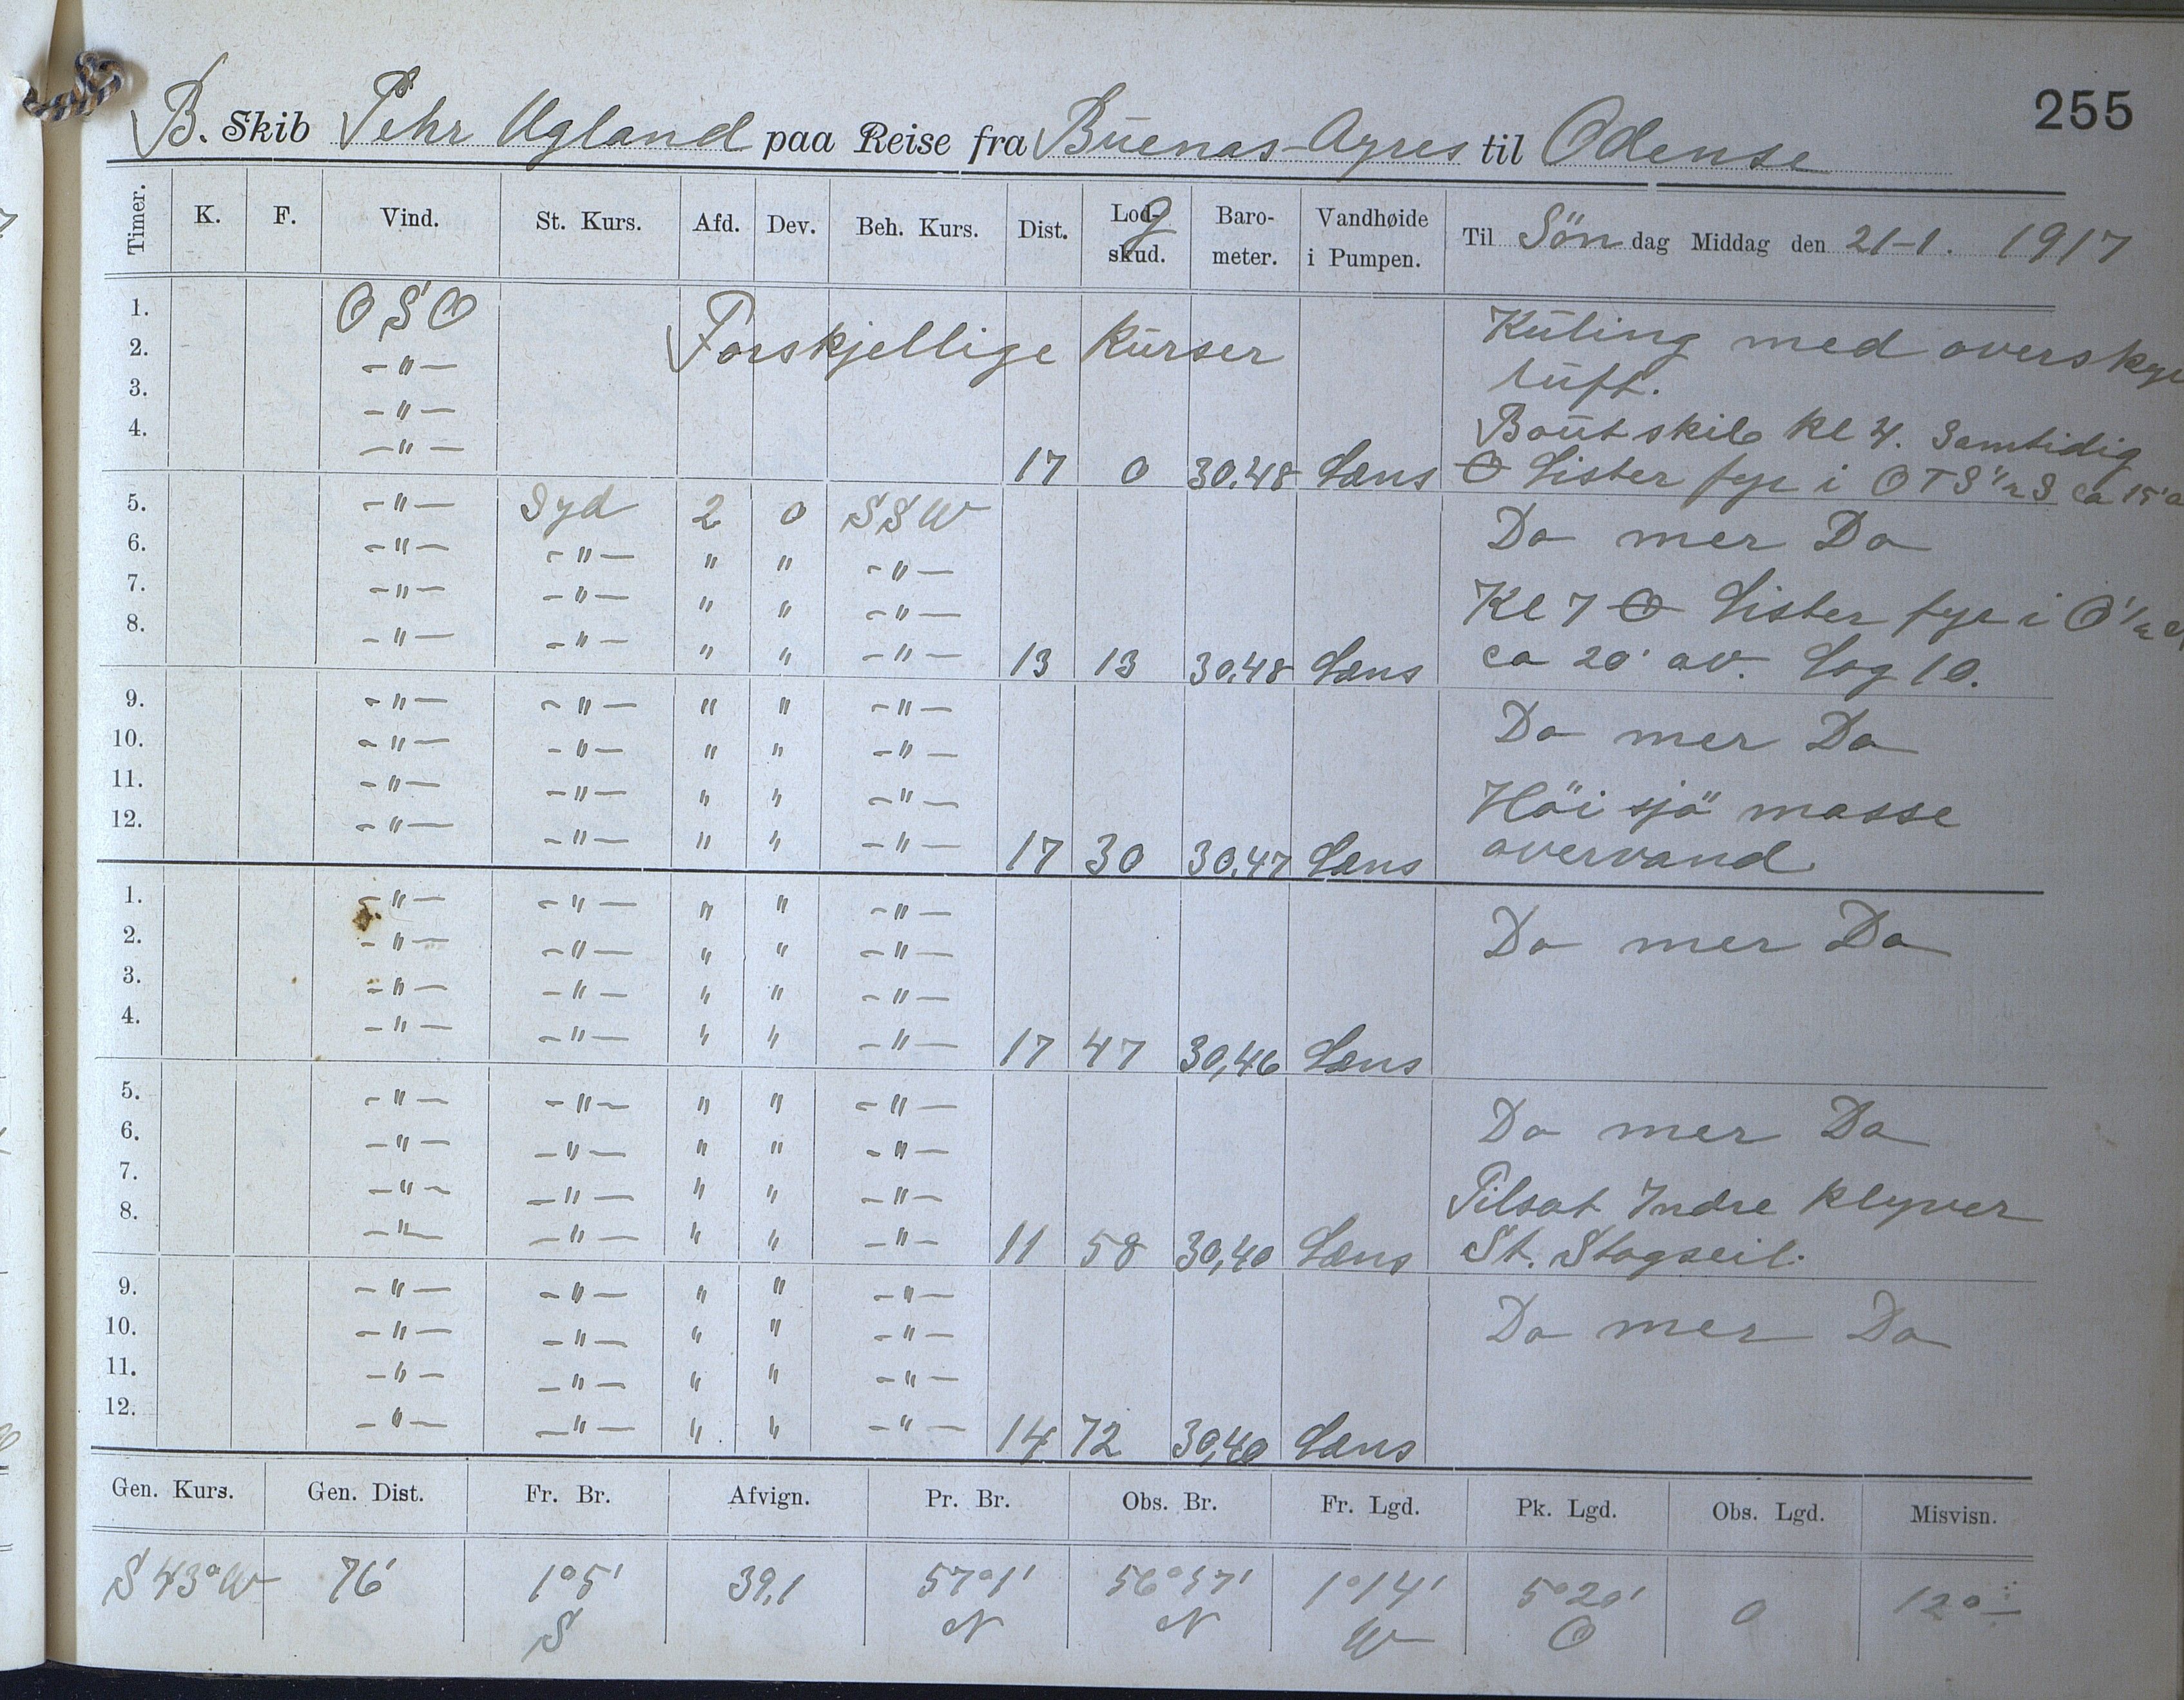 255
B. Skib Pehr Ugland paa Reise fra Buenas-Ayres til Odense
Timer. K. F. Vind. St. Kurs. Afd. Dev. Beh. Kurs. Dist. Lodg skud. Barometer. Vandhøide i Pumpen. Til Søndag Middag den 21-1. 1917
1. OSO Forskjellige Kurser Kuling med
2. -"- luft.
3. -"- Boutskib kl 4. Samtidig
4. -"- 17 0 30.48 Læns Lister fyr i OTS 1/2 S ca 15'
5. -"- Syd 2 0 SSW Do mer Do
6. -"- -"- " " -"-
7. -"- -"- " " -"- Kl 7 Lister fyr i O 1/2
8. -"- -"- " " -"- 13 13 30.48 Læns ca 20' av. Log 10.
9. -"- -"- " " -"- Do mer Do
10. -"- -"- " " -"-
11. -"- -"- " " -"- Höi sjö masse
12. -"- -"- " " -"- 17 30 30.47 Læns overvand
1. -"- -"- " " -"- Do mer Do
2. -"- -"- " " -"-
3. -"- -"- " " -"-
4. -"- -"- " " -"- 17 47 30,46 Læns
5. -"- -"- " " -"- Do mer Do
6. -"- -"- " " -"-
7. -"- -"- " " -"- Tilsat Indre klyver
8. -"- -"- " " -"- 11 58 30,40 Læns St. Stagseil.
9. -"- -"- " " -"- Do mer Do
10. -"- -"- " " -"-
11. -"- -"- " " -"-
12. -"- -"- " " -"- 14 72 30,40 Læns
Gen. Kurs. Gen. Dist. Fr. Br. Afvign. Pr. Br. Obs. Br. Fr. Lgd. Pk. Lgd. Obs. Lgd. Misvisn.
S 43° W 76' 1°5' 39,1 57°1' 56°57' 1°14' 5°20' 0 12°
S N N W O